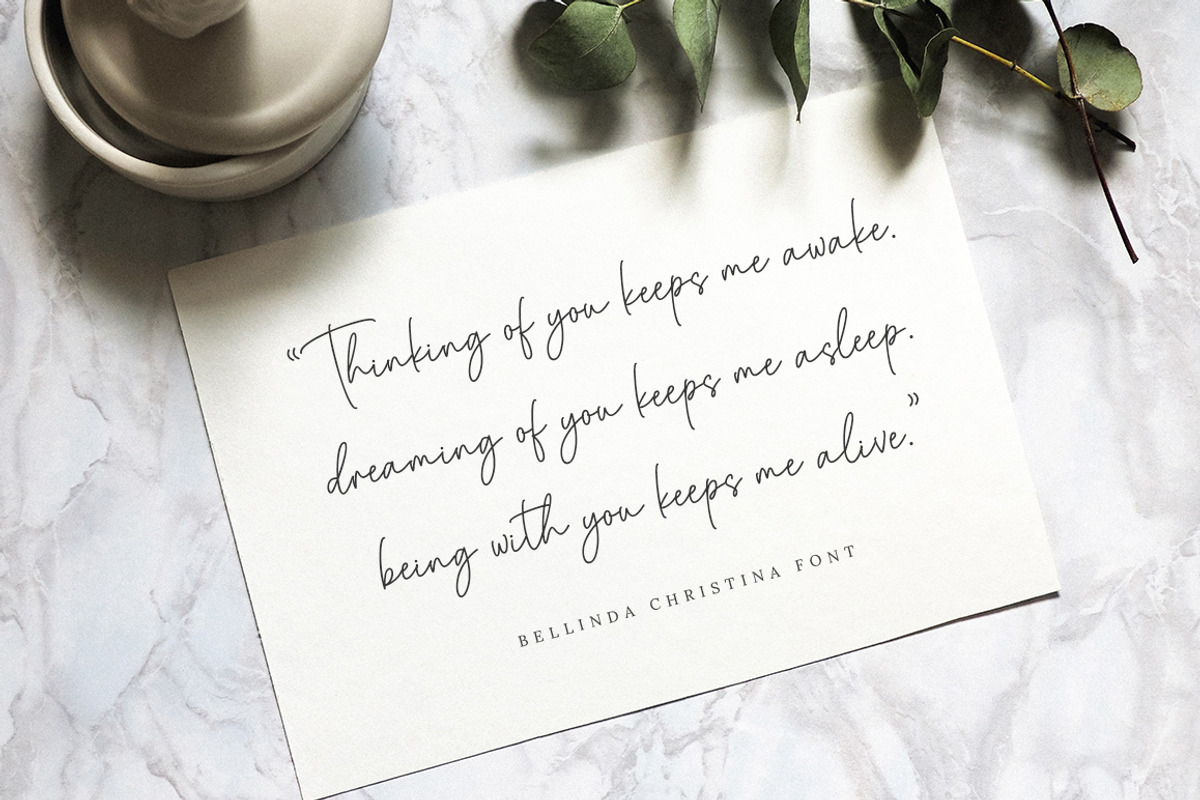 “Thinking of you keeps me awake.
dreaming of you keeps me asleep.
being with you keeps me alive.”
BELLINDA CHRISTINA FONT